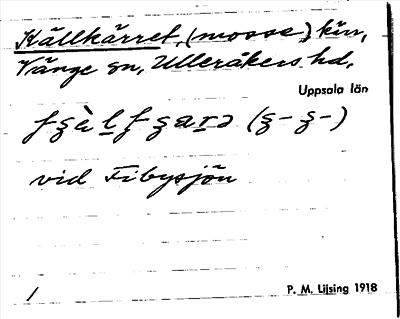 Källkärret, (mosse), kärr,
Vänge sn, Ulleråkers hd,
Uppsala län
vid Fibysjön
1
P. M. Lijsing 1918